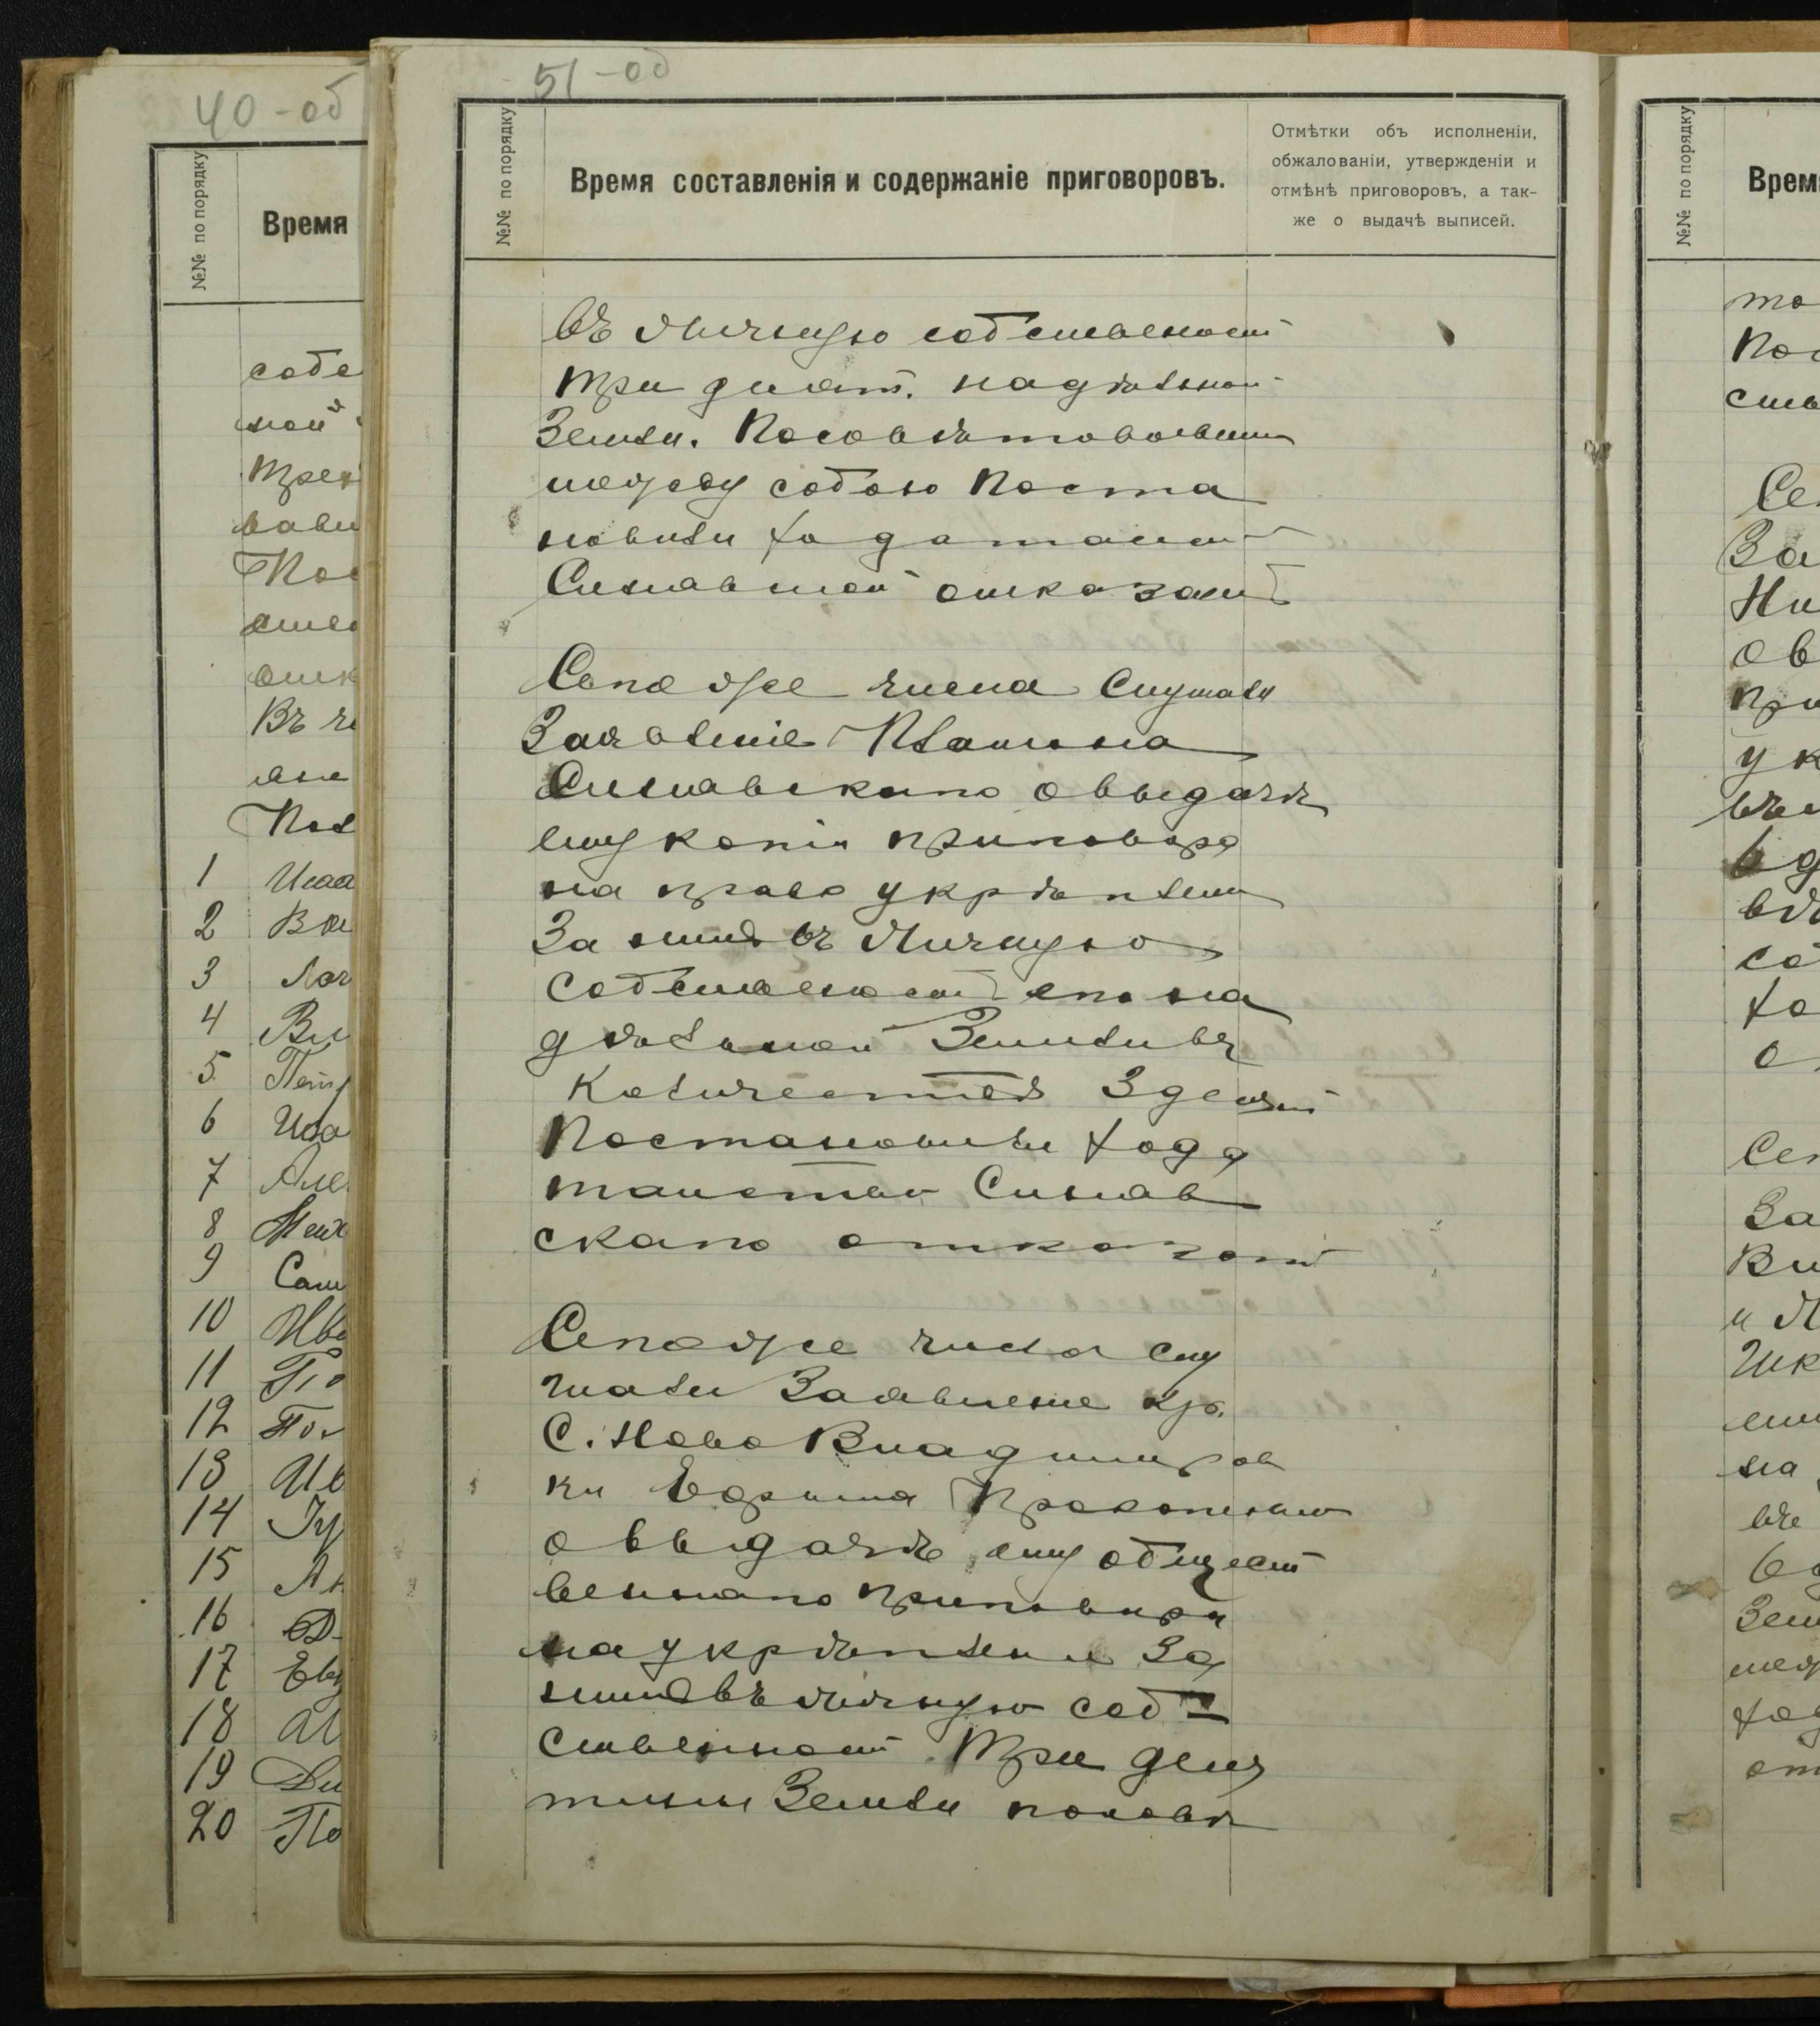 40-об
№№ по порядку
Время
собс
ной
Трех
вави
Пос
отк
Въ
Пос
1
2
3
4
5
6
7
8
9
10
11
12
13
14
15
16
17
18
19
20
51-об
№№ по порядку
Время составленія и содержаніе приговоровъ.
Отмѣтки объ исполненіи,
обжалованіи, утвержденіи и
отмѣнѣ приговоровъ, а так-
же о выдачѣ выписей.
въ личную собственост
три десят. надѣльной
Земли. Посовѣтовавши
между собою Поста
новили ходатаист
отказать
Сего же числа Слушали
Заявленіе Платона
Сиславскаго о выдачѣ
ему копіи приговора
на право укрѣплени
За ним въ Личную
Собственост его на
дѣльной Земли въ
Количествѣ 3 десят
Постановили хода
таиство Сислав
скаго отказат
Сего же числа слу
шали Заявление кр.
С. Ново Владимиров
ки Ефрима Прокопенко
о выдачѣ ему общест
веннаго приговора
на укрѣпление За
ним въ личную соб-
ственност Три деся
тины Земли
№№ по порядку
Врем
то
Пос
ств
Сег
За
Ни
ов
при
ук
въ
хо
о
Сег
За
Ви
и
на
въ
Зем
меж
ход
от